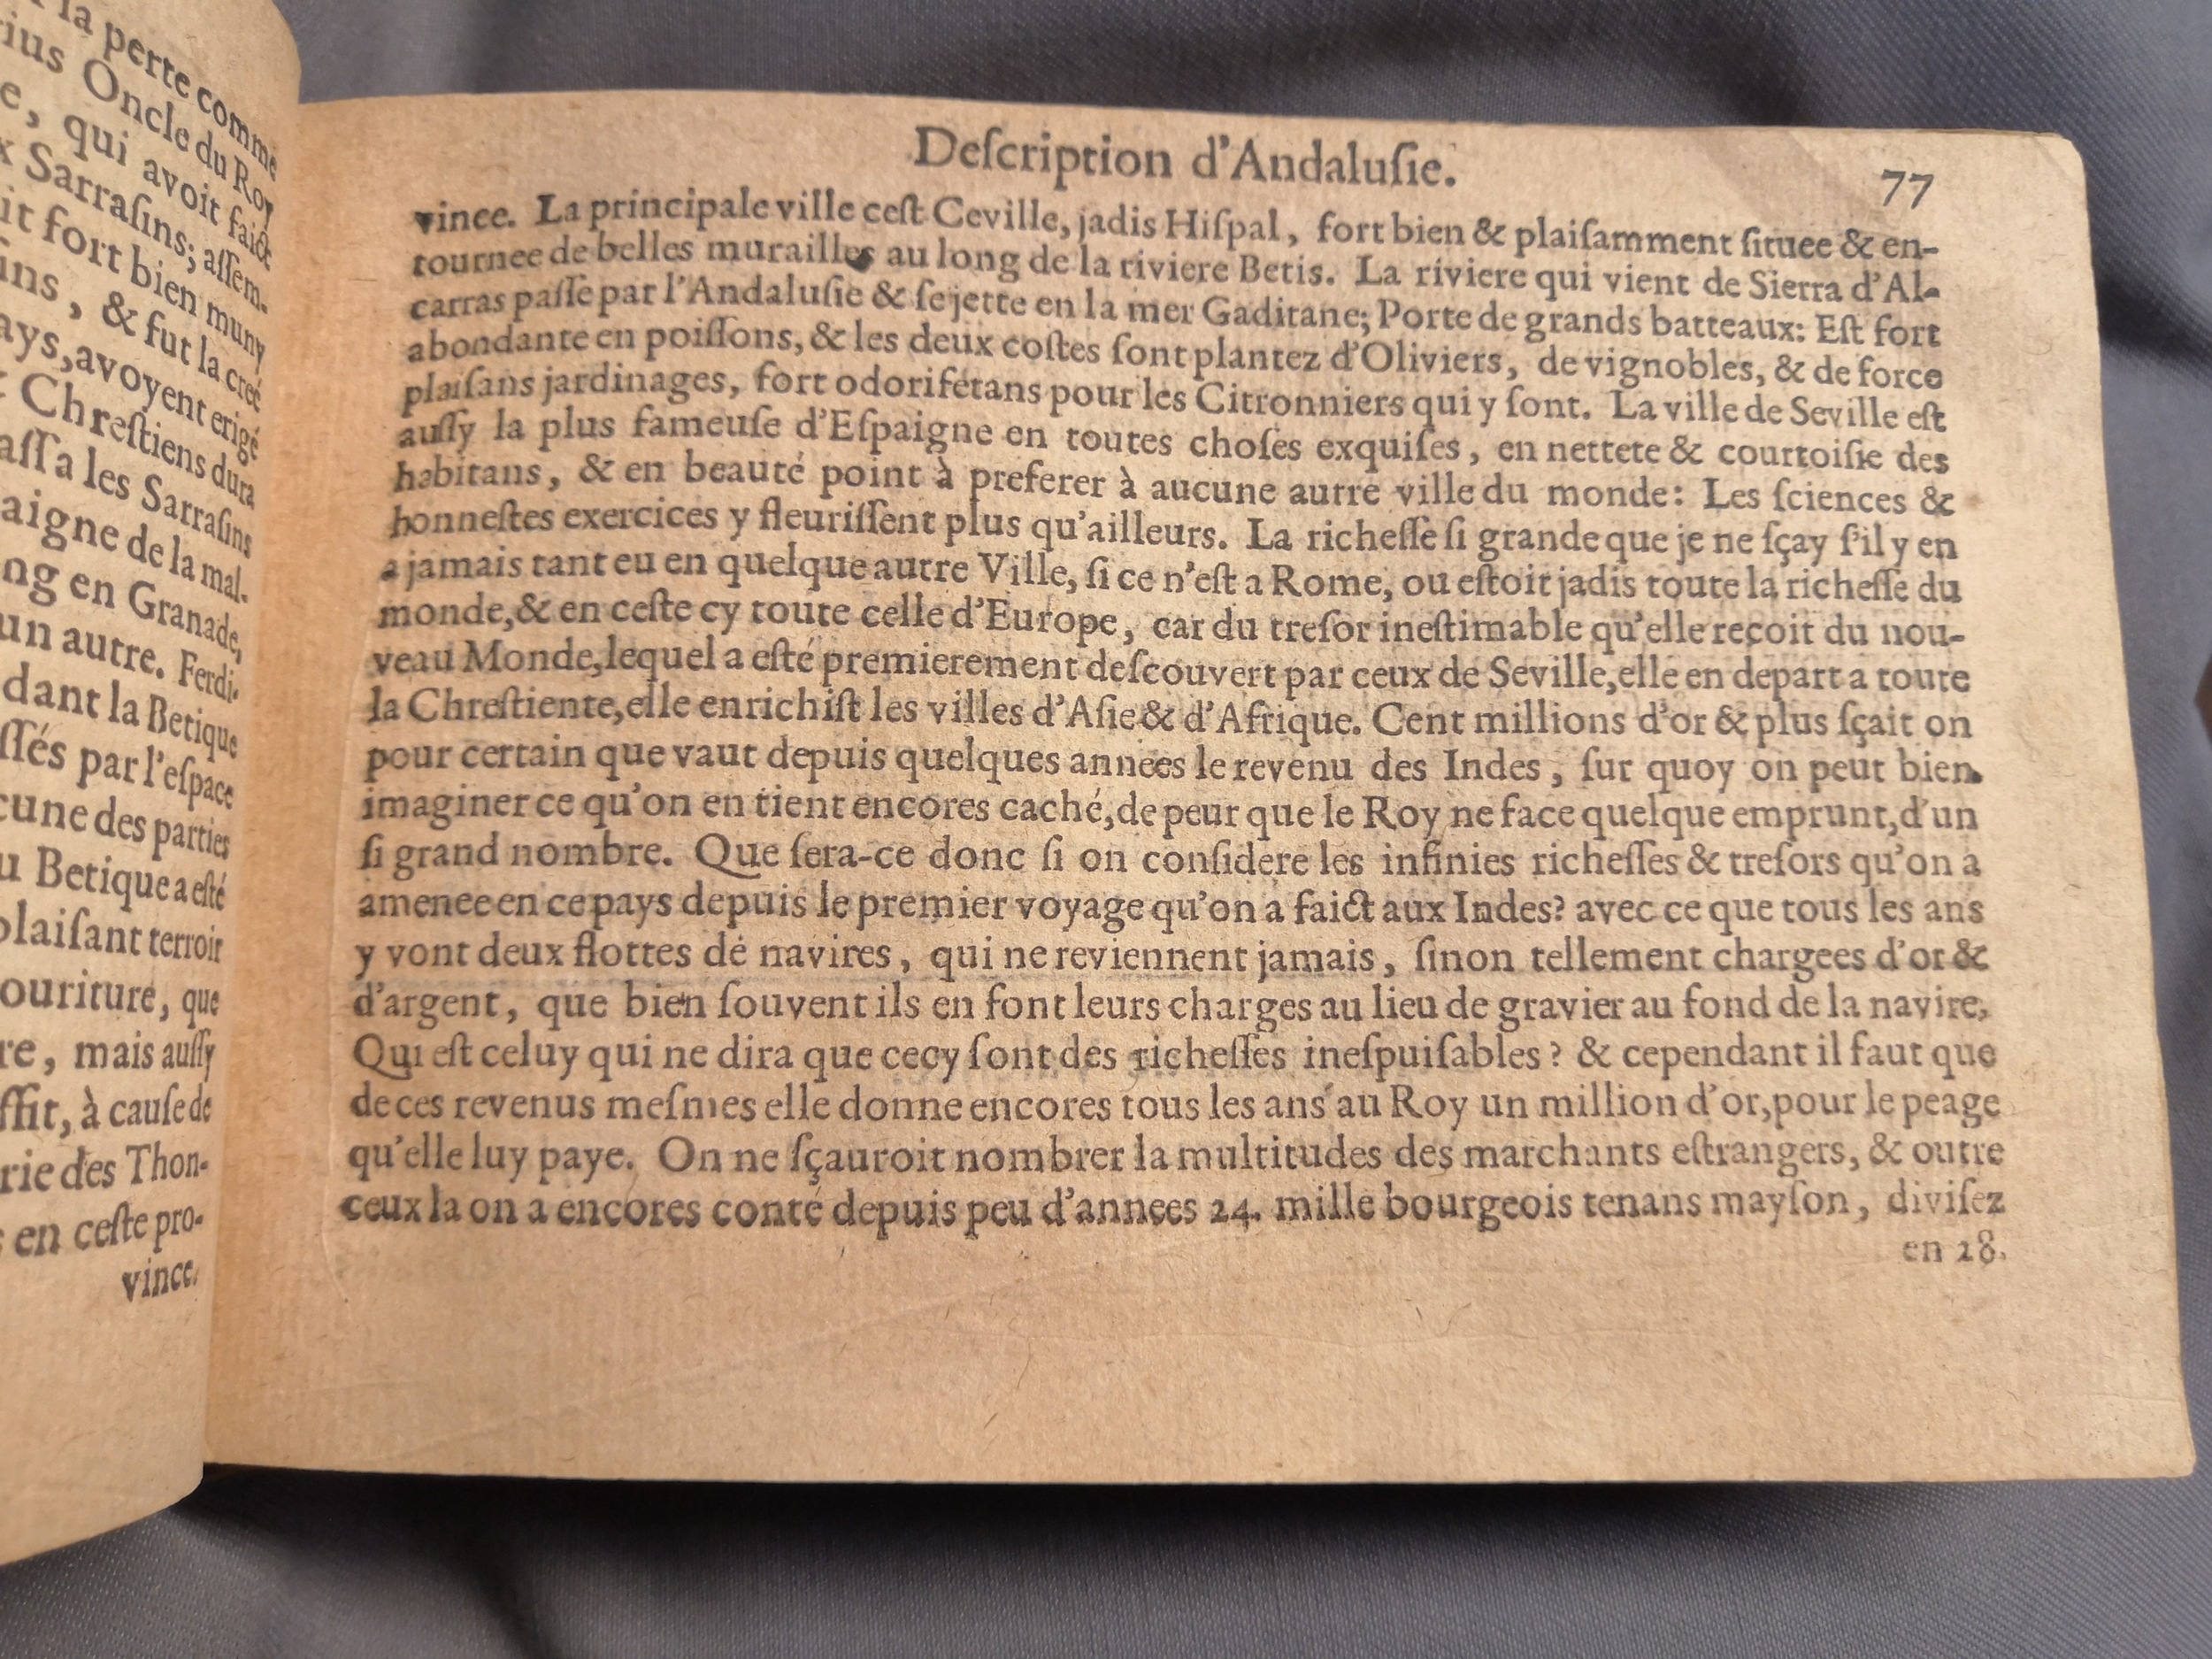 la perte comme
ius Oncle du Roy
e, qui avoit faict
x Sarraſins; aſſem-
it fort bien muny
ins, & fut la creé
ays, avoyent erigé
Chreſtiens dura
aſſa les Sarraſins
aigne de la mal-
ng en Granade,
un autre. Ferdi-
dant la Betique
ſſés par l'eſpace
cune des parties
u Betique a eſté
plaiſant terroir
ouriture, que
re, mais auſſy
ffit, à cauſe de
rie des Thon-
en ceſte pro-
vince.
Deſcription d'Andaluſie.
77
vince. La principale ville ceſt Ceville, jadis Hiſpal, fort bien & plaiſamment ſituee & en-
tournee de belles murailles au long de la riviere Betis. La riviere qui vient de Sierra d'Al-
carras paſſe par l'Andaluſie & ſe jette en la mer Gaditane; Porte de grands batteaux: Eſt fort
abondante en poiſſons, & les deux coſtes ſont plantez d'Oliviers, de vignobles, & de force
plaiſans jardinages, fort odoriferans pour les Citronniers qui y ſont. La ville de Seville eſt
auſſy la plus fameuſe d'Eſpaigne en toutes choſes exquiſes, en nettete & courtoiſie des
habitans, & en beauté point à preferer à aucune autre ville du monde: Les ſciences &
honneſtes exercices y fleuriſſent plus qu'ailleurs. La richeſſe ſi grande que je ne ſçay ſ'il y en
a jamais tant eu en quelque autre Ville, ſi ce n'eſt a Rome, ou eſtoit jadis toute la richeſſe du
monde, & en ceſte cy toute celle d'Europe, car du treſor ineſtimable qu'elle reçoit du nou-
veau Monde, lequel a eſté premierement deſcouvert par ceux de Seville, elle en depart a toute
la Chreſtiente, elle enrichiſt les villes d'Aſie & d'Afrique. Cent millions d'or & plus ſçait on
pour certain que vaut depuis quelques annees le revenu des Indes, ſur quoy on peut bien
imaginer ce qu'on en tient encores caché, de peur que le Roy ne face quelque emprunt, d'un
ſi grand nombre. Que ſera-ce donc ſi on conſidere les infinies richeſſes & treſors qu'on a
amenee en ce pays depuis le premier voyage qu'on a faict aux Indes? avec ce que tous les ans
y vont deux flottes de navires, qui ne reviennent jamais, ſinon tellement chargees d'or &
d'argent, que bien ſouvent ils en font leurs charges au lieu de gravier au fond de la navire,
Qui eſt celuy qui ne dira que cecy ſont des richeſſes ineſpuiſables? & cependant il faut que
de ces revenus meſmes elle donne encores tous les ans au Roy un million d'or, pour le peage
qu'elle luy paye. On ne ſçauroit nombrer la multitudes des marchants eſtrangers, & outre
ceux la on a encores conté depuis peu d'annees 24. mille bourgeois tenans mayſon, diviſez
en 28.